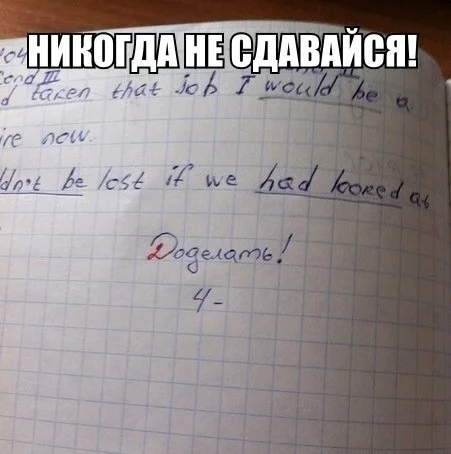 НИКОГДА НЕ СДАВАЙСЯ!
taken that job I would be a
ire now.
ldn't be lost if we had looked at
Доделать!
4-